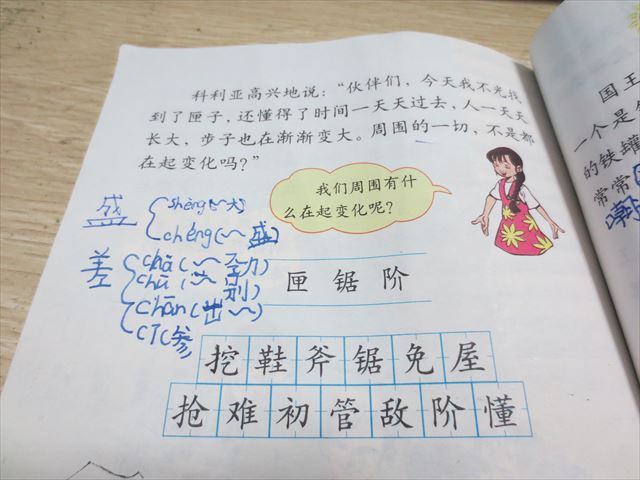 科利亚高兴地说：“伙伴们，今天我不光找
到了匣子，还懂得了时间一天天过去，人一天天
长大，步子也在渐渐变大。周围的一切，不是都
在起变化吗？”
我们周围有什
么在起变化呢？
盛
shèng(～大)
chéng(～盛)
差
匣 锯 阶
挖 鞋 斧 锯 免 屋
抢 难 初 管 敌 阶 懂
国王
一个是
的铁罐
常常
嘲